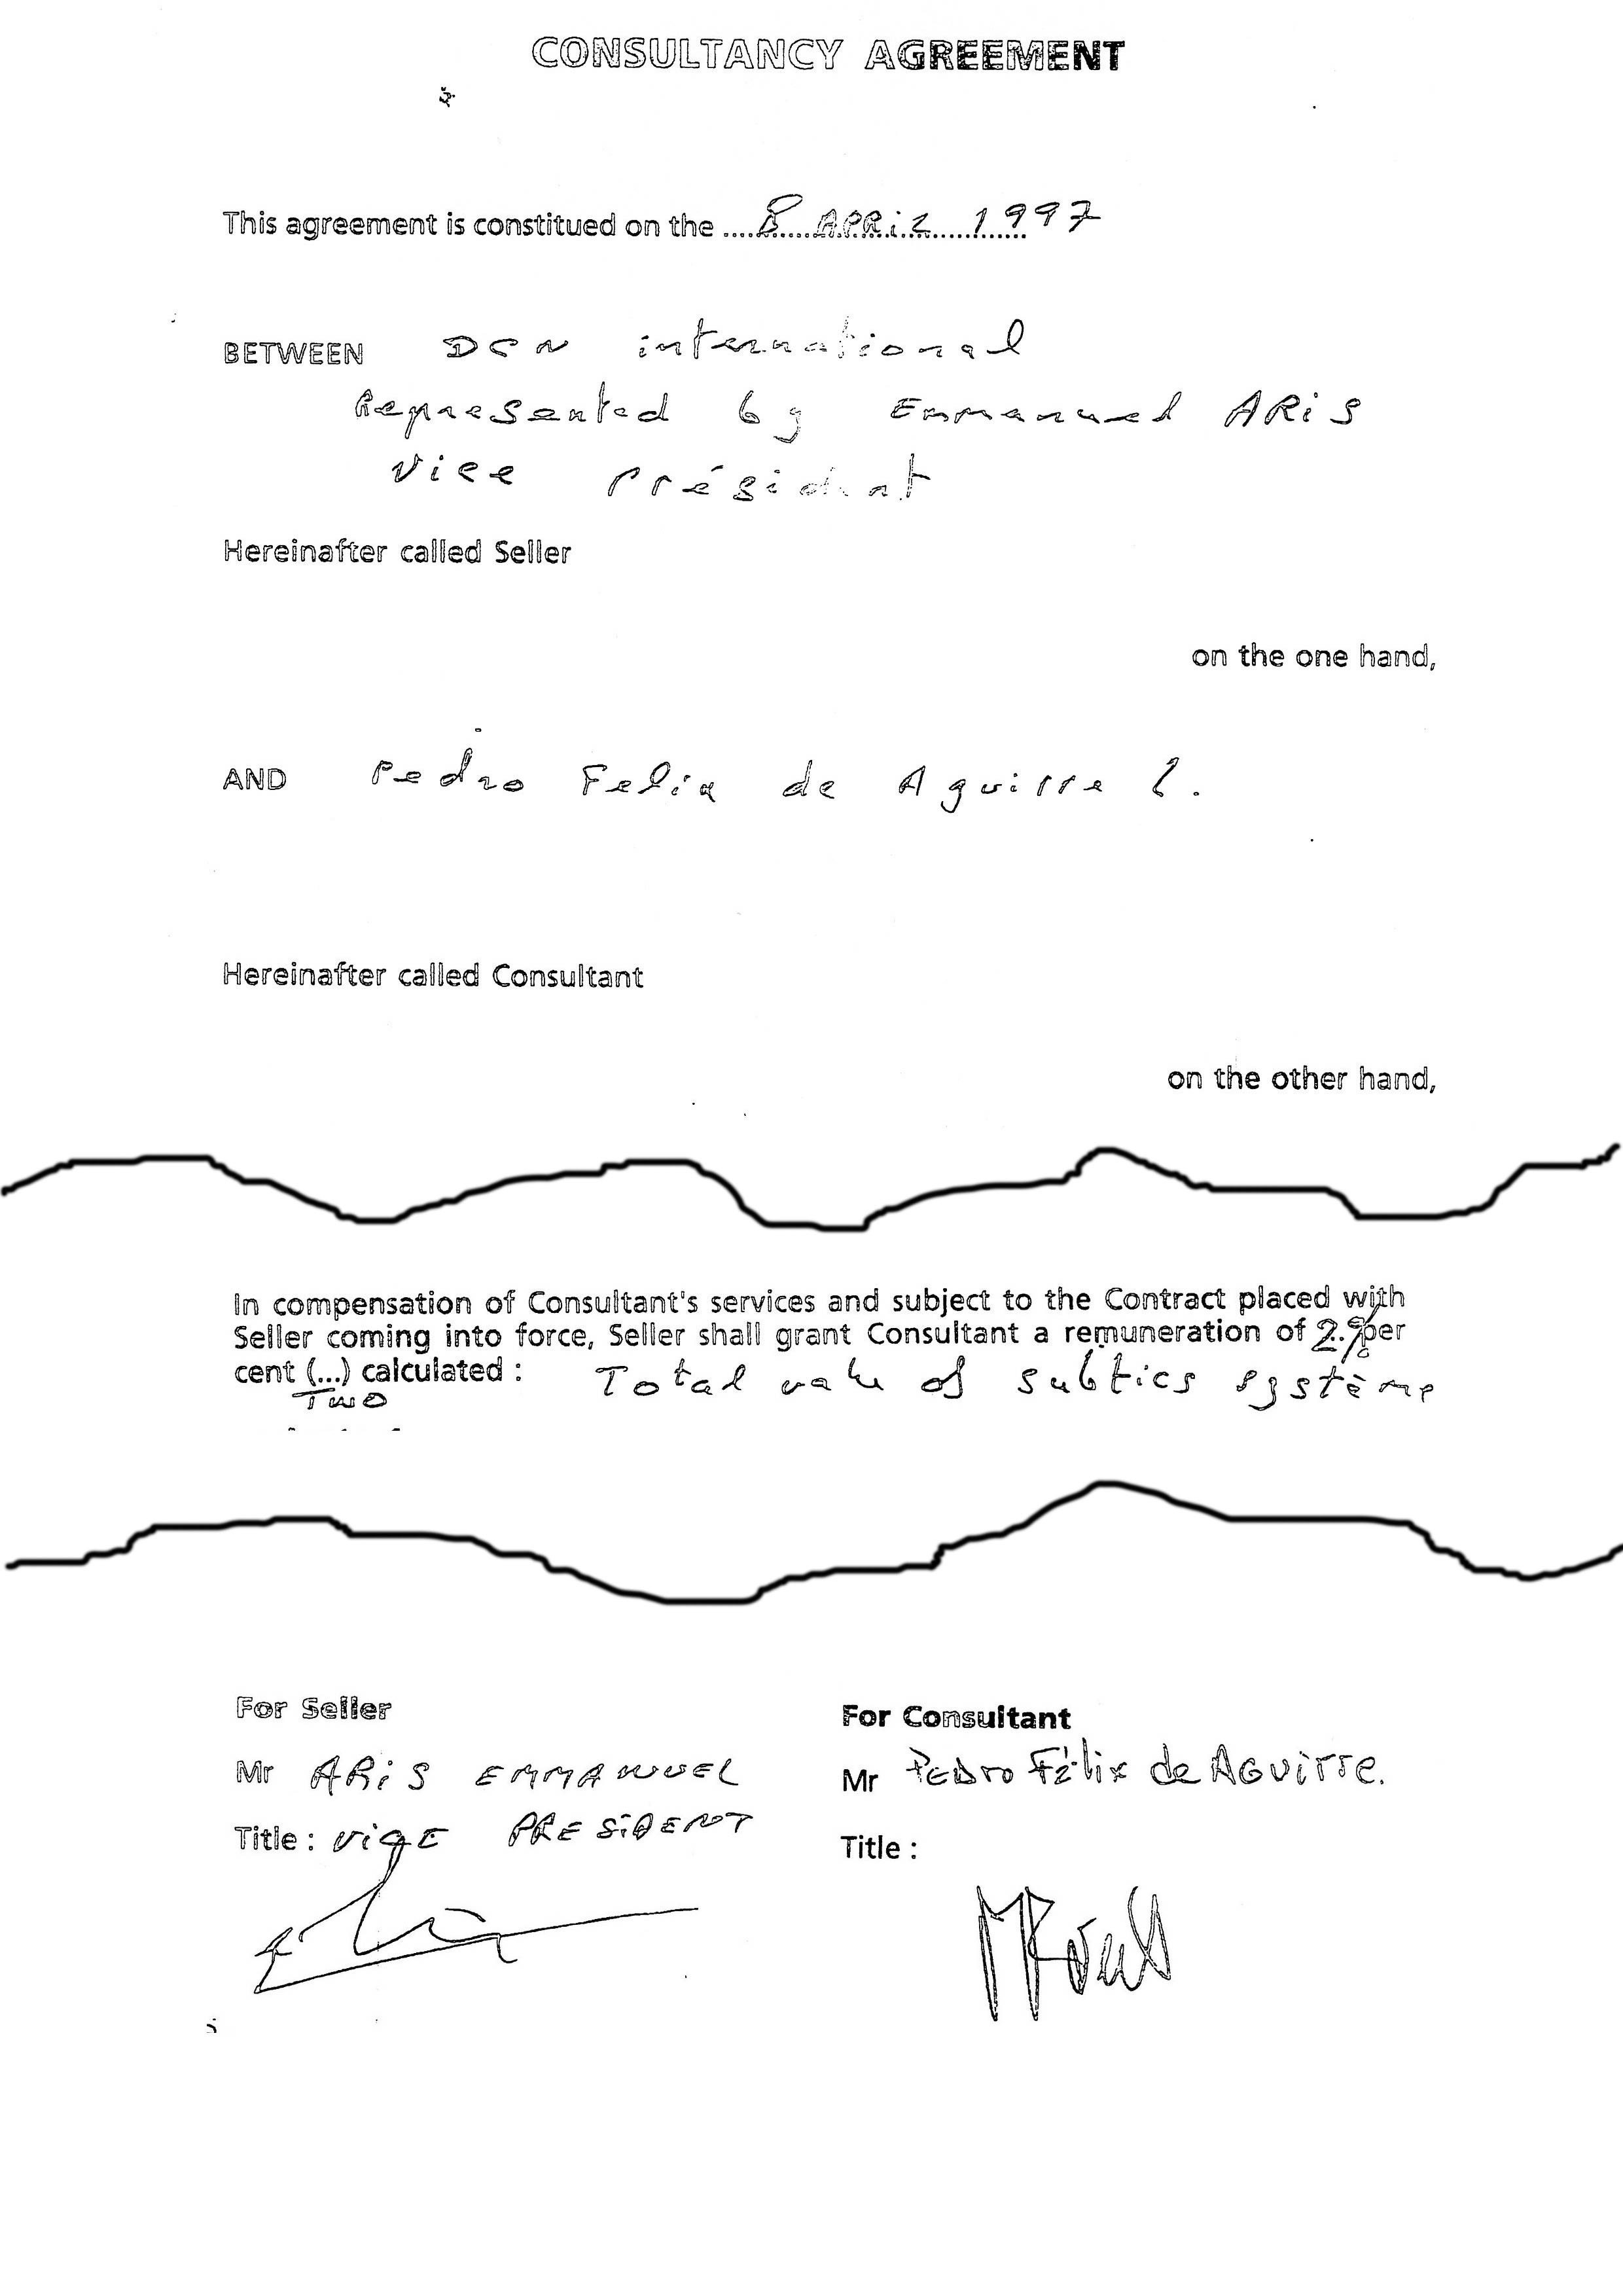 CONSULTANCY AGREEMENT
This agreement is constitued on the ....8.... APRIL 1997
BETWEEN DCN international
Represented by Emmanuel ARIS
Vice Président
Hereinafter called Seller
on the one hand,
AND Pedro Felix de Aguirre L.
Hereinafter called Consultant
on the other hand,
In compensation of Consultant's services and subject to the Contract placed with
Seller coming into force, Seller shall grant Consultant a remuneration of 2.% per
cent (...) calculated : Total value of subtics système
TWO
For Seller
Mr ARIS EMMANUEL
Title : VICE PRESIDENT
For Consultant
Mr Pedro Félix de AGuirre.
Title :